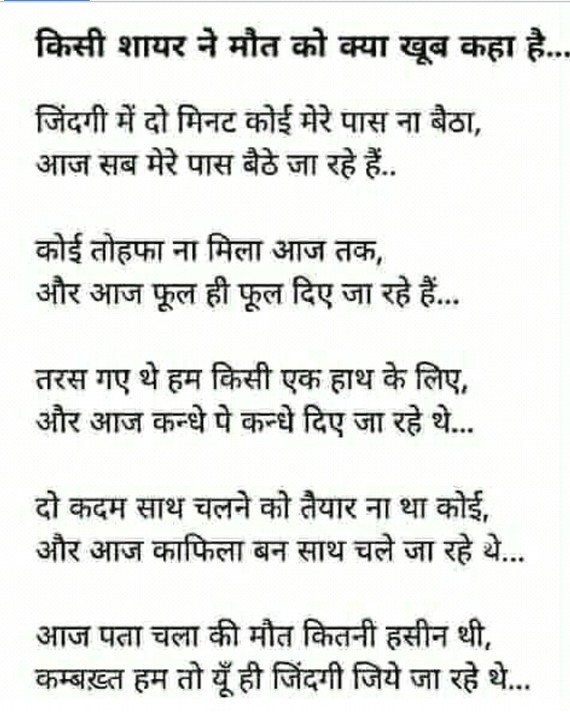 किसी शायर ने मौत को क्या खूब कहा है...
जिंदगी में दो मिनट कोई मेरे पास ना बैठा,
आज सब मेरे पास बैठे जा रहे हैं..
कोई तोहफा ना मिला आज तक,
और आज फूल ही फूल दिए जा रहे हैं...
तरस गए थे हम किसी एक हाथ के लिए,
और आज कन्धे पे कन्धे दिए जा रहे थे...
दो कदम साथ चलने को तैयार ना था कोई,
और आज काफिला बन साथ चले जा रहे थे...
आज पता चला की मौत कितनी हसीन थी,
कम्बख़्त हम तो यूँ ही जिंदगी जिये जा रहे थे...